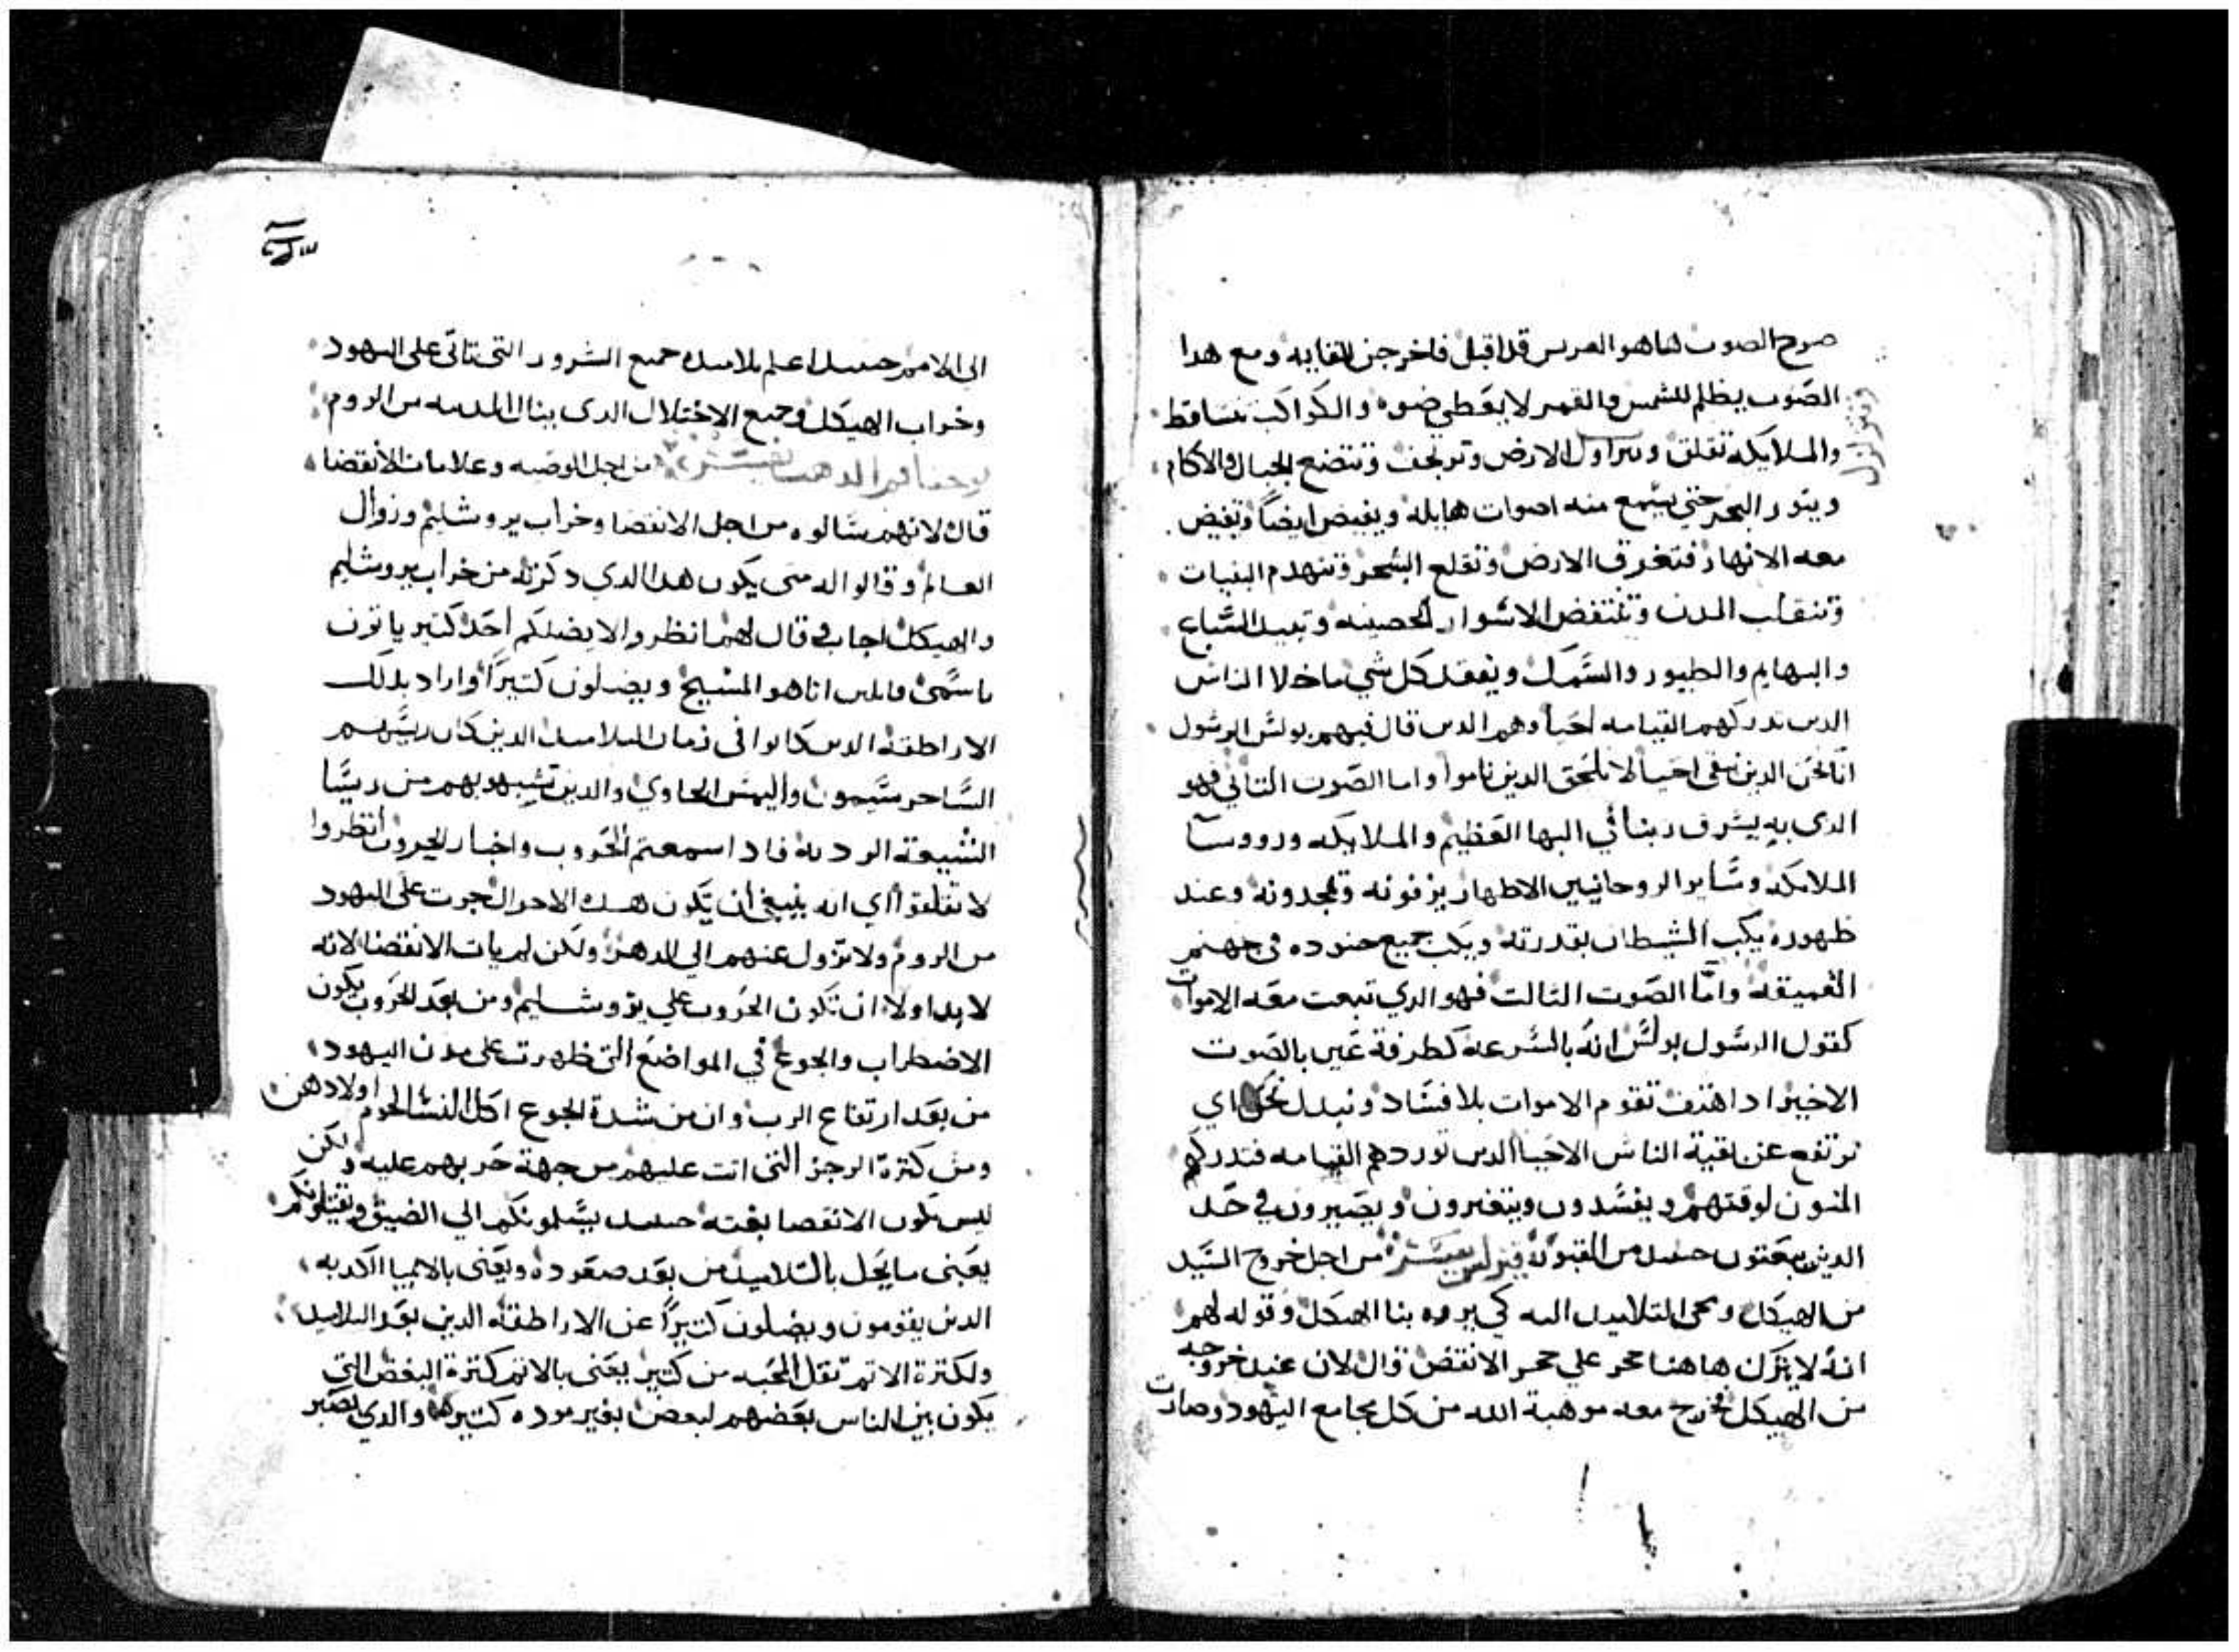 صرح الصوت هاهو العريس قد اقبل فاخرجن للقايه ومع هدا
الصوت يظلم للشمس والقمر لا يعطي ضوه والكواكب تتساقط
والملايكه تقلق وتتزاول الارض وترتجف وتتضع الجبال والاكام
وتتزلزل
ويتور البحر حتي يسمع منه اصوات هايله ويفيض ايضاً وتفيض
معه الانهار فتغرق الارض وتقلع الشجر وتنهدم البنيات
وتنقلب المدن وتنتقض الاسوار الحصينه وتبيد السباع
والبهايم والطيور والسمك ويفقد كل شي ماخلا الناس
الدين تدركهم القيامه احيا وهم الدين قال فيهم بولس الرسول
انا نحن الدين نبقى احيا لا نلحق الدين ناموا واما الصوت التاني فهو
الدى به يشرف ربنا في البها العظيم والملايكه وروسا
الملايكه وساير الروحانيين الاطهار يزفونه ويمجدونه وعند
ظهوره يكب الشيطان بقدرته ويكب جميع جنوده في جهنم
العميقه واما الصوت التالت فهو الدي تبعت معه الاموات
كقول الرسول بولس انه بالسرعه كطرفة عين بالصوت
الاخير ادا هتف تقوم الاموات بلا فساد ونبدل نحن اي
ترتفع عن بقية الناس الاحيا الدين توردهم القيامه فتدركهم
المنون لوقتهم ويفسدون ويتغيرون ويصيرون في حد
الدين يبعتون حينيد من القبور من اجل خروج السيد
من الهيكل ومجى التلاميد اليه كي يروه بنا الهيكل وقوله لهم
انه لا يترك هاهنا حجر علي حجر الا نتقض قال لان عند خروجه
من الهيكل خرج معه موهبة الله من كل مجامع اليهود وصارت
الى الامم حينيد اعلم تلاميده جميع الشرور التى تاتى على اليهود
وخراب الهيكل وجميع الاختلال الدى ينال المدينه من الروم
يوحنا فم الدهب من اجل الوصيه وعلامات الانقضا
قال لانهم سالوه من اجل الانقضا وخراب يروشليم وزوال
العالم وقالوا له متى يكون هدا الدي دكرته من خراب يروشليم
والهيكل اجاب وقال لهم انظروا لا يضلكم احد كتير ياتون
باسمى قايلين انا هو المسيح ويضلون كتيراً واراد بدلك
الاراطقه الدين كانوا فى زمان التلاميد الدين كان رييسهم
الساحر سيمون واليمس الحاوي والدين تشبهو بهم من ريسا
الشيعته الرديه فادا سمعتم الحروب واخبار الحروب انظروا
لا تقلقوا اي انه ينبغي ان تكون هده الاحوال جرت على اليهود
من الروم ولا تزول عنهم الي الدهر ولكن لم يات الانقضا لانه
لا بد اولا ان تكون الحروب علي يروشليم ومن بعد الحروب يكون
الاضطراب والجوع في المواضع التى ظهرت على مدن اليهود
من بعد ارتفاع الرب وان من شدة الجوع اكل النسا لحوم اولادهن
ومن كترة الرجز التى اتت عليهم من جهة حربهم عليه ولكن
ليس يكون الانقضا بغته حينيد يسلمونكم الي الضيق ويقتلونكم
يعنى ما يحل بالتلاميد من بعد صعوده ويعنى بالانبيا الكدبه
الدين يقومون ويضلون كتيراً عن الاراطقه الدين بعد التلاميد
ولكترة الاتم تقل المحبه من كتير يعنى بالاتم كترة البغض التي
يكون بين الناس بعضهم لبعض بغير موده كتيره والدي يصبر